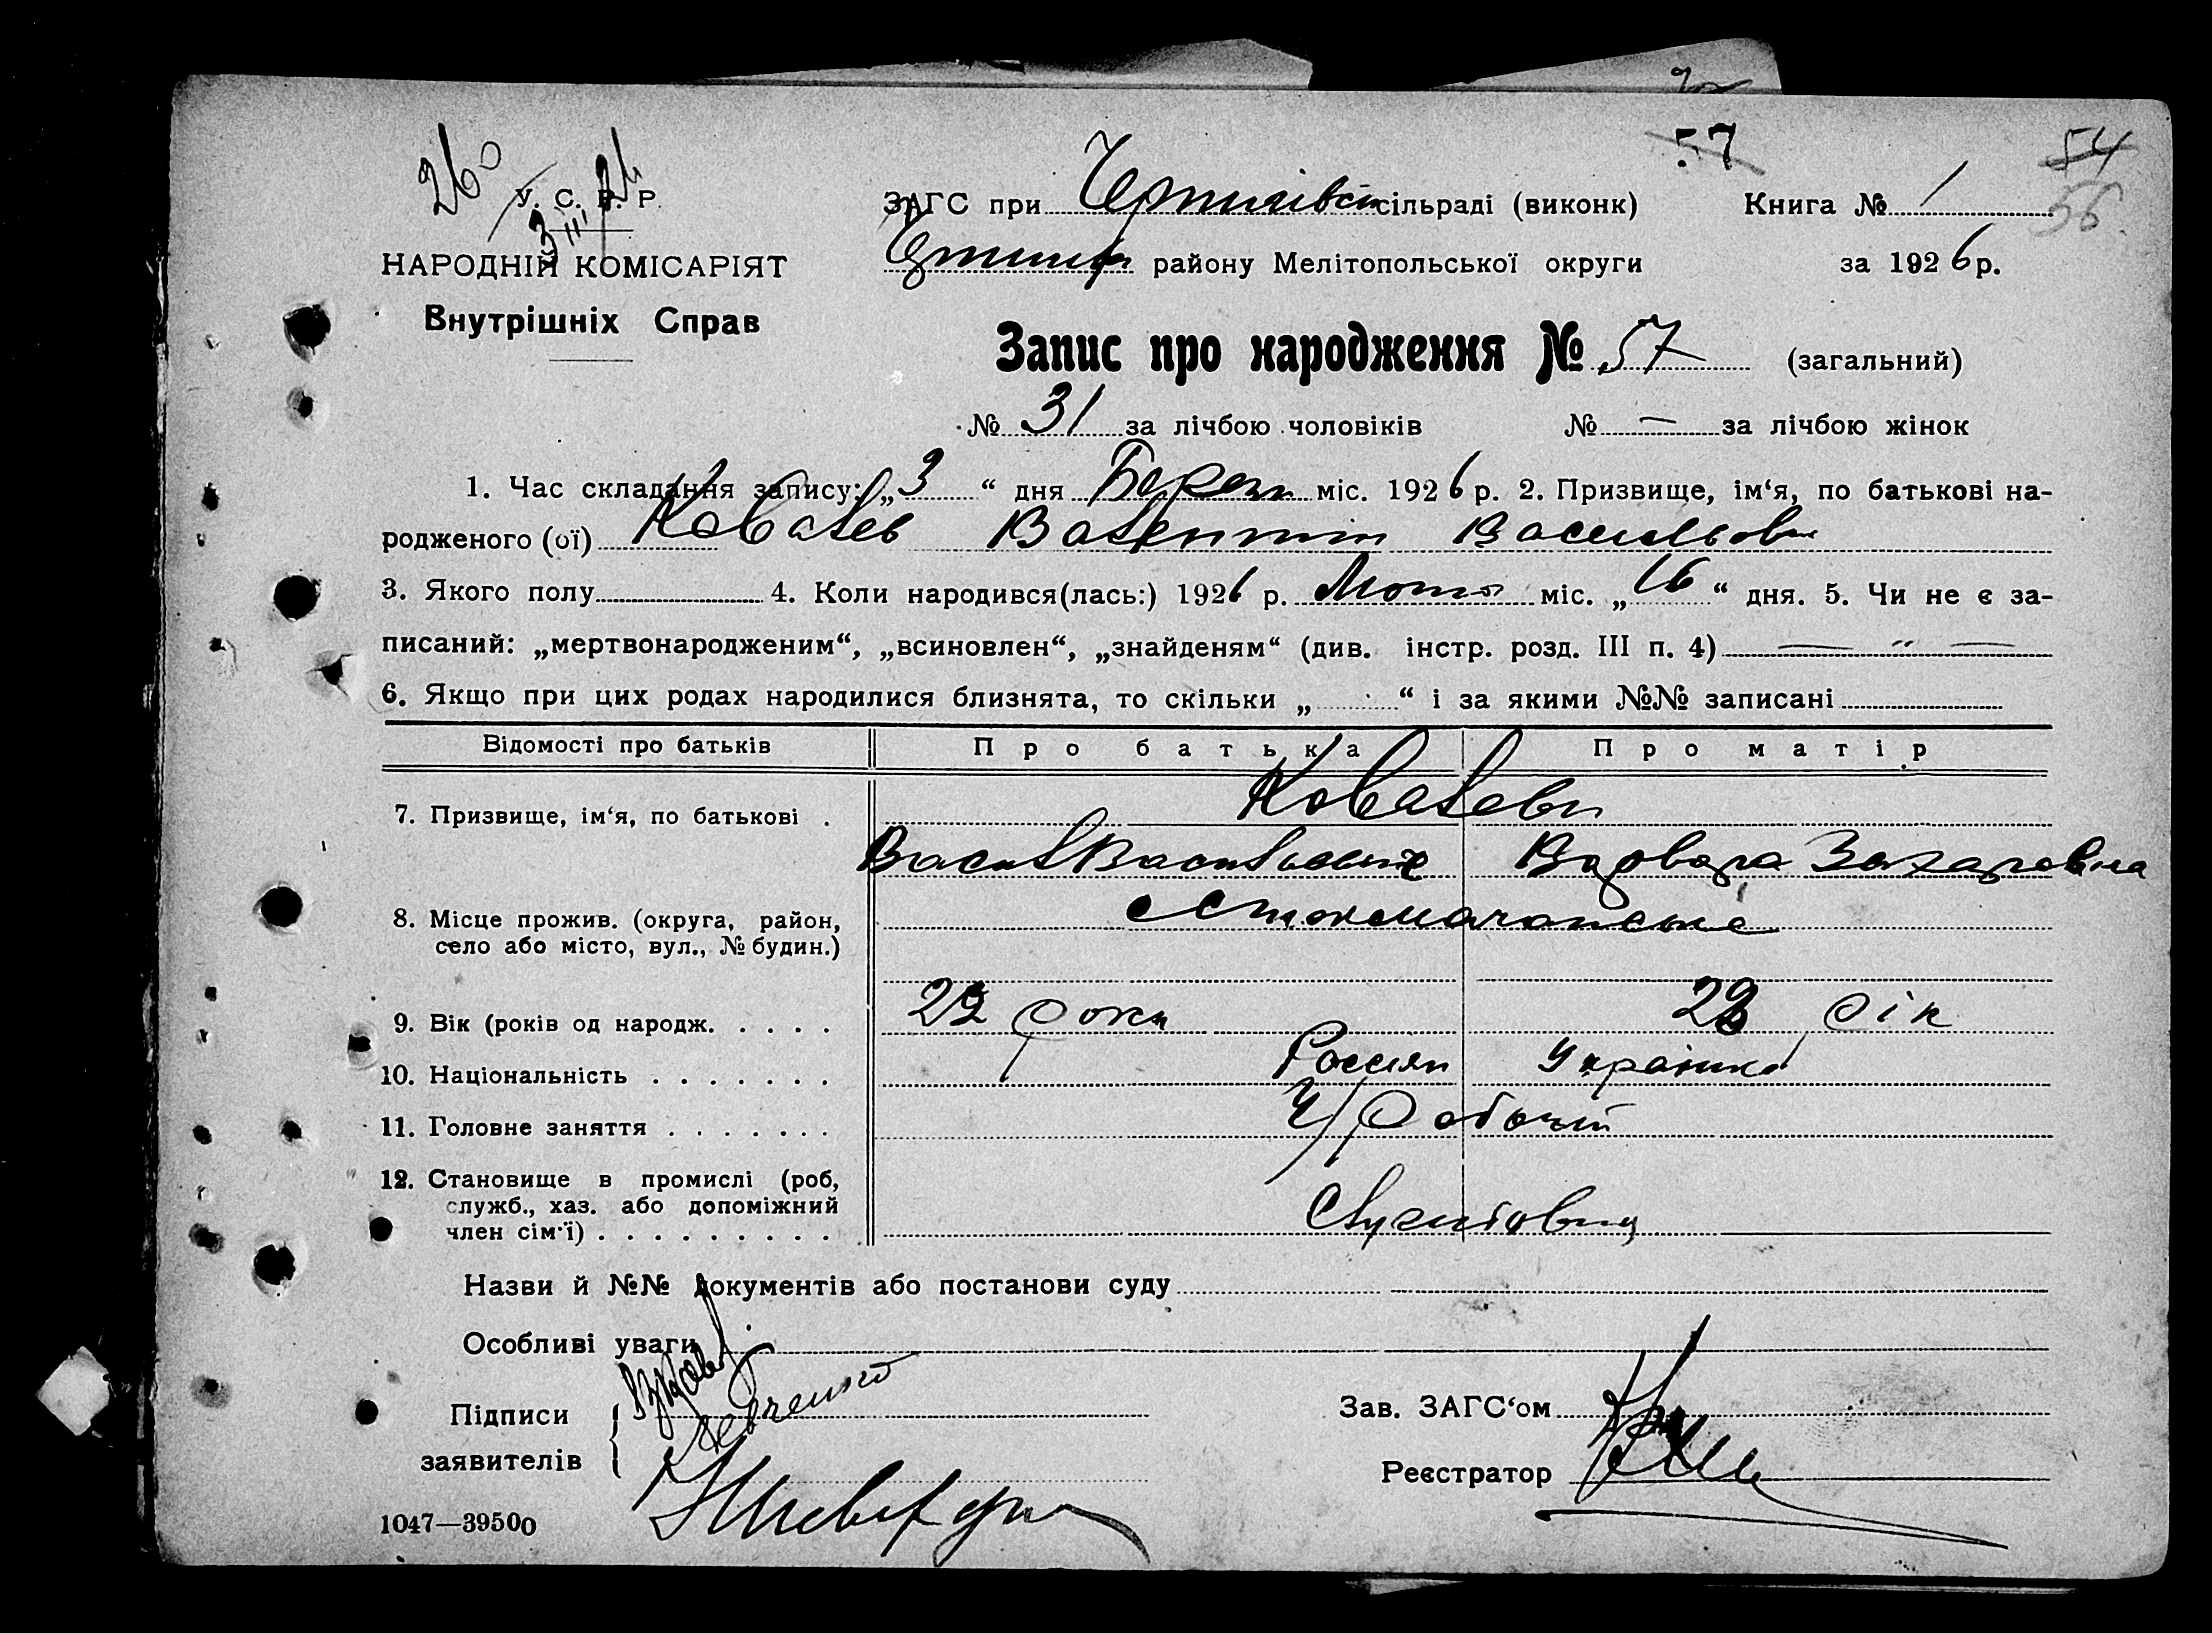 260
57
54
56
У. С. Р. Р.
ЗАГС при сільраді (виконк) Книга № 1
НАРОДНІЙ КОМІСАРІЯТ
району Мелітопольської округи за 1926 р.
Внутрішніх Справ
Запис про народження № 57 (загальний)
№ 31 за лічбою чоловіків № — за лічбою жінок
1. Час складання запису: „3“ дня Березн міс. 1926 р. 2. Призвище, ім‘я, по батькові на-
родженого (ої) Ковалев Валентин Васильов
3. Якого полу 4. Коли народився(лась:) 1926 р. Лютого міс. „16“ дня. 5. Чи не є за-
писаний: „мертвонародженим“, „всиновлен“, „знайденям“ (див. інстр. розд. III п. 4) — " —
6. Якщо при цих родах народилися близнята, то скільки „ “ і за якими №№ записані
Відомості про батьків Про батька Про матір
7. Призвище, ім‘я, по батькові .
Ковалеви
Васил Васильевич Варвара Захаровна
8. Місце прожив. (округа, район,
село або місто, вул., № будин.)
9. Вік (років од народж. . . . . 22 роки рік
10. Національність . . . . . . . Россіян Українка
11. Головне заняття . . . . . . . Ч/Робочий
12. Становище в промислі (роб,
служб., хаз. або допоміжний
член сім‘ї) . . . . . . . . .
Назви й №№ документів або постанови суду
Особливі уваги
Підписи
заявителів
Зав. ЗАГС‘ом
Реєстратор
1047—39500